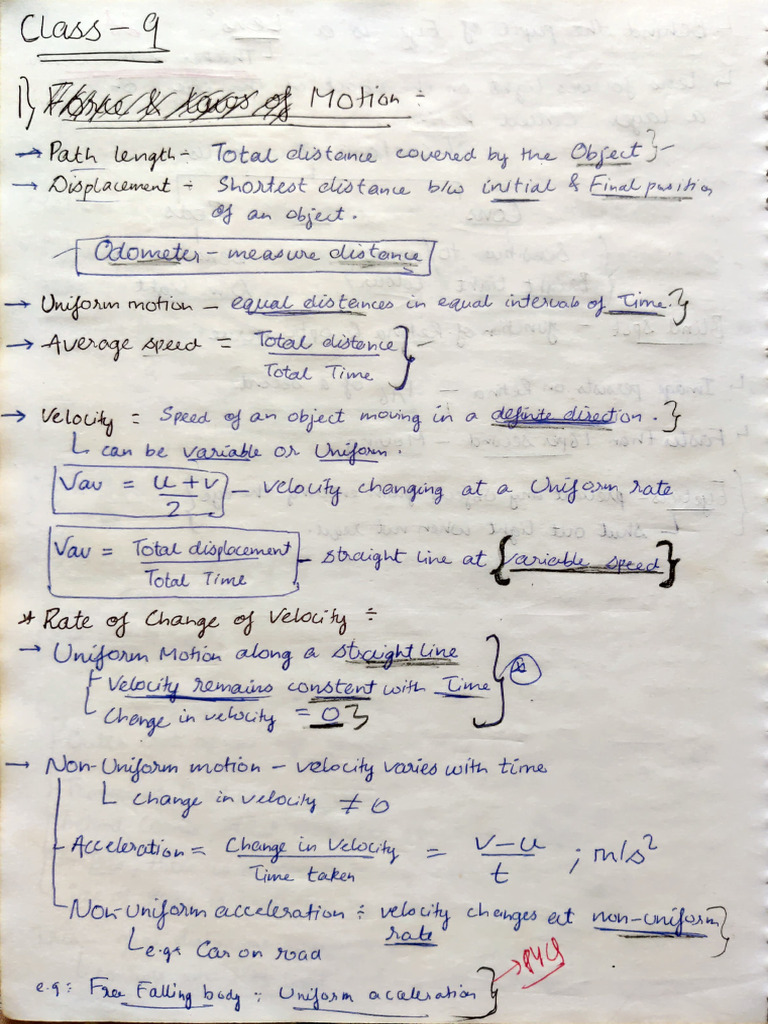 Class - 9
1) Force & Laws of Motion ÷
→ Path length - Total distance covered by the Object } -
→ Displacement ÷ Shortest distance b/w initial & Final position
of an object.
Odometer - measure distance
→ Uniform motion - equal distances in equal intervals of Time. }
→ Average speed = Total distance / Total Time } -
→ Velocity = Speed of an object moving in a definite direction. }
└ can be variable or Uniform.
Vav = u+v / 2 - velocity changing at a Uniform rate
Vav = Total displacement / Total Time - straight line at { variable speed }
* Rate of Change of Velocity ÷
→ Uniform Motion along a straight line
Velocity remains constant with Time
Change in velocity = 0 }
→ Non-Uniform motion - velocity varies with time
└ change in velocity ≠ 0
- Acceleration = Change in Velocity / Time taken = v-u / t ; m/s²
- Non-Uniform acceleration ÷ velocity changes at non-uniform
rate
└ e.g: Car on road
e.g: Free Falling body : Uniform acceleration } → PYQ